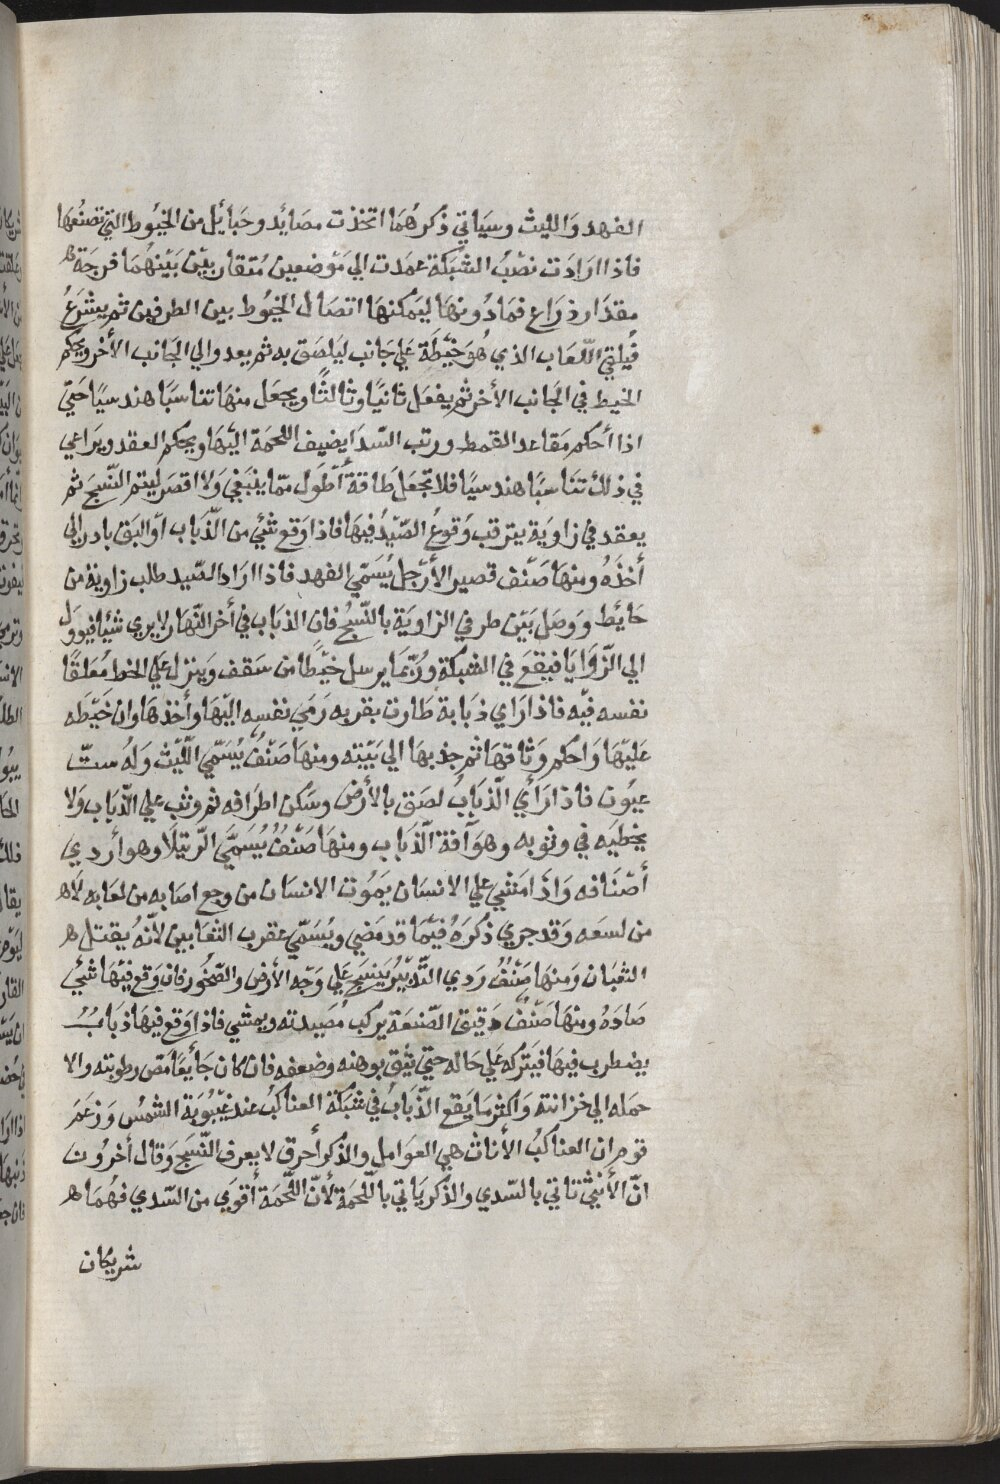 الفهد والليث وسياتي ذكرهما اتخذت مصائد وحبائل من الخيوط التي تصنعها
فاذا ارادت نصب الشبكة عمدت الي موضعين متقاربين بينهما فرجة
مقدار ذراع فما دونها ليمكنها اتصال الخيوط بين الطرفين ثم يشرع
فيلقي اللعاب الذي هو خيطة علي جانب ليلصق به ثم يعدو الي الجانب الأخر ويحكم
الخيط في الجانب الأخر ثم يفعل ثانيا وثالثا ويجعل منها تناسبا هندسيا حتي
اذا أحكم مقاعد القمط ورتب السدا يضيف اللحمة اليها ويحكم العقد ويراعي
في ذلك تناسبا هندسيا فلا تجعل طاقة أطول مما ينبغي ولا اقصر ليتم النسج ثم
يعقد في زاوية يترقب وقوع الصيد فيها فاذا وقع شئ من الذباب او البق بادر الي
أخذه ومنها صنف قصير الأرجل يسمي الفهد فاذا اراد الصيد طلب زاوية من
حائط ووصل بين طرفي الزاوية بالنسج فان الذباب في أخر النهار لا يري شيئا فيوول
الي الزوايا فيقع في الشبكة وربما يرسل خيطا من سقف وينزل علي الخط معلقا
نفسه فيه فاذا راي ذبابة طارت بقربه رمي نفسه اليها وأخذها وان خيطه
عليها واحكم وثاقها ثم جذبها الي بيته ومنها صنف يسمي الليث وله ست
عيون فاذا رأي الذباب لصق بالأرض وسكن اطرافه ثم وثب علي الذباب ولا
يخطيه في وثوبه وهو آفة الذباب ومنها صنف يسمي الرتيلا وهو أردي
أصنافه واذا مشي علي الانسان يموت الانسان من وجع اصابه من لعابه لا
من لسعه وقد جري ذكره فيما قد مضي ويسمي عقرب الثعابين لأنه يقتل
الثعبان ومنها صنف ردي التدبير ينسج علي وجه الأرض والصخور فان وقع فيها شئي
صاده ومنها صنف دقيق الصنعة يركب مصيدته ويمشي فاذا وقع فيها ذباب
يضطرب فيها فيتركه علي حاله حتي يثق بوهنه وضعفه فان كان جائعا مص رطوبته والا
حمله الي خزانته واكثر ما يقع الذباب في شبكة العناكب عند غيبوبة الشمس وزعم
قوم ان العناكب الأناث هي العوامل والذكر أخرق لا يعرف النسج وقال أخرون
ان الأنثي تاتي بالسدي والذكر ياتي باللحمة لأن اللحمة أقوي من السدي فهما
شريكان